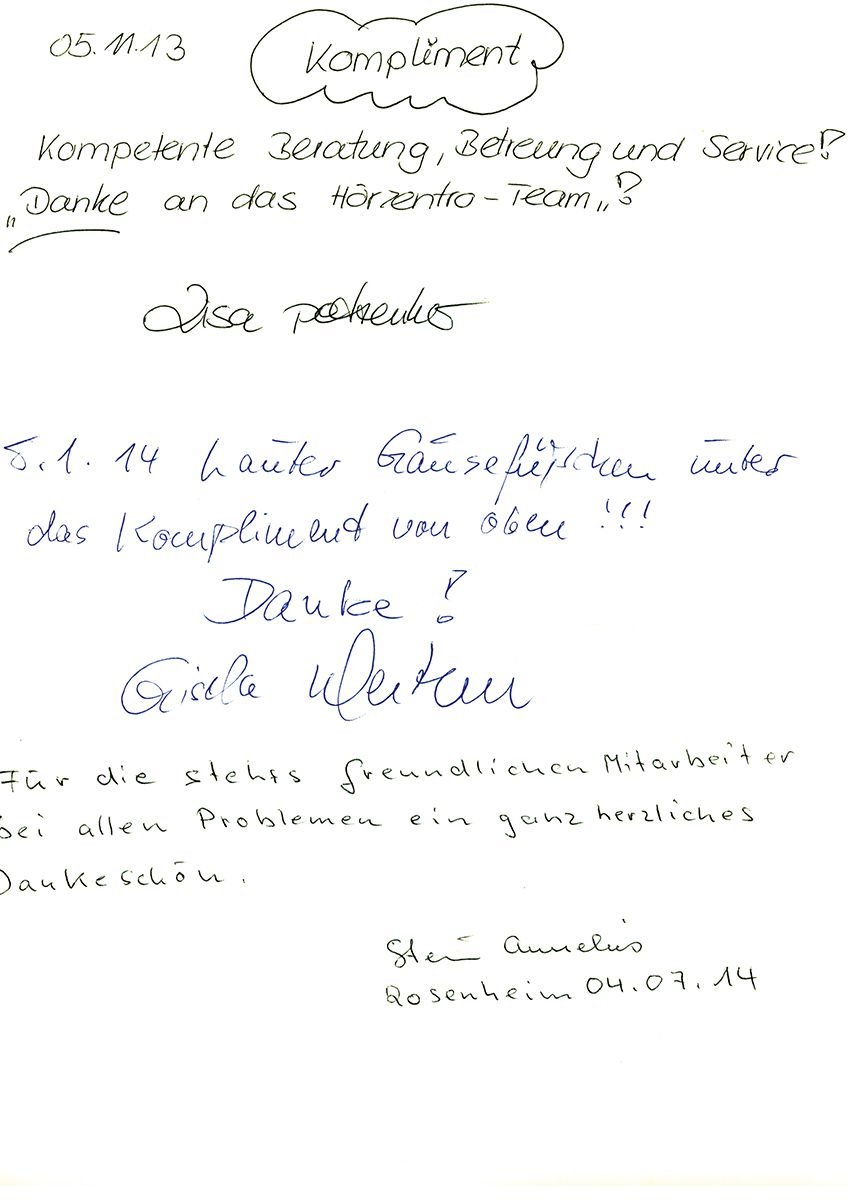 05.11.13 Kompliment
Kompetente Beratung, Betreung und Service!
„Danke an das Hörzentro-Team„!
Lisa
8.1.14 Lauter Gänsefüßchen unter
das Kompliment von oben!!!
Danke!
Gisela
Für die stehts freundlichen Mitarbeiter
bei allen Problemen ein ganz herzliches
Dankeschön.
Annelies
Rosenheim 04.07.14